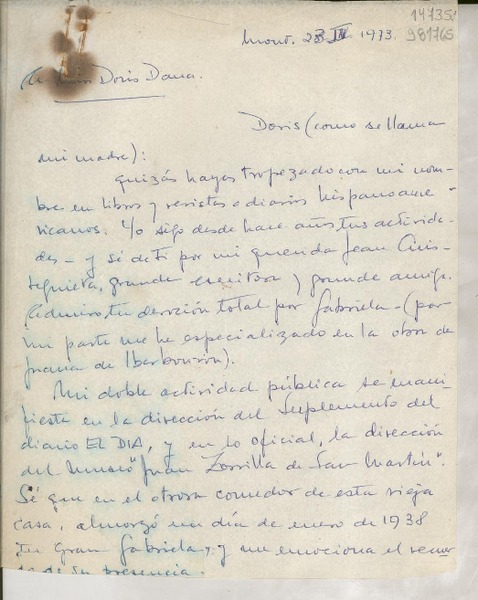 14735
981765
Mont. 23 IV 1973.
A Miss Doris Dana.
Doris (como se llama
mi madre):
quizás hayas tropezado con mi nom-
bre en libros y revistas o diarios hispanoame-
ricanos. Yo sigo desde hace años tus activida-
des - y sé de ti por mi querida Jean
grande escritora y grande amiga.
Admiro tu devoción total por Gabriela - (por
mi parte me he especializado en la obra de
Juana de Ibarbourou).
Mi doble actividad pública se mani-
fiesta en la dirección del Suplemento del
diario EL DIA, y en lo oficial, la dirección
del Museo "Juan Zorrilla de San Martín".
Sé que en el otrora comedor de esta vieja
casa, almorzó un día de enero de 1938
tu gran Gabriela, y me emociona el recuer-
do de su presencia.